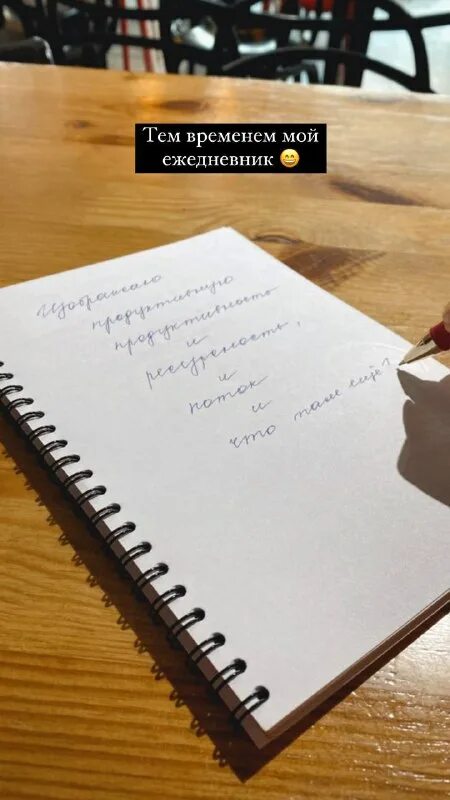 Тем временем мой
ежедневник 😄
Изображаю
продуктивную
продуктивность
и
ресурсность,
и
поток
и
что там ещё?